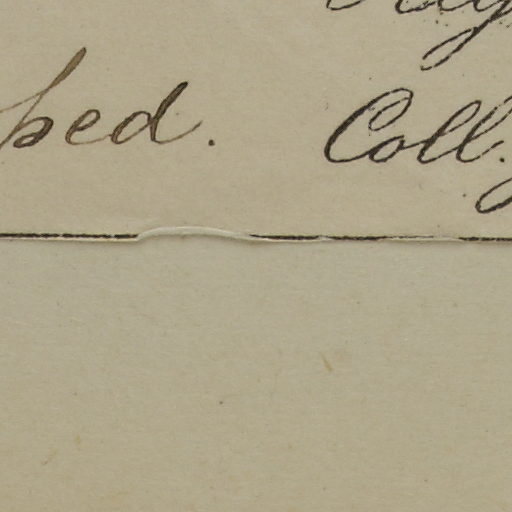 ped. Coll.